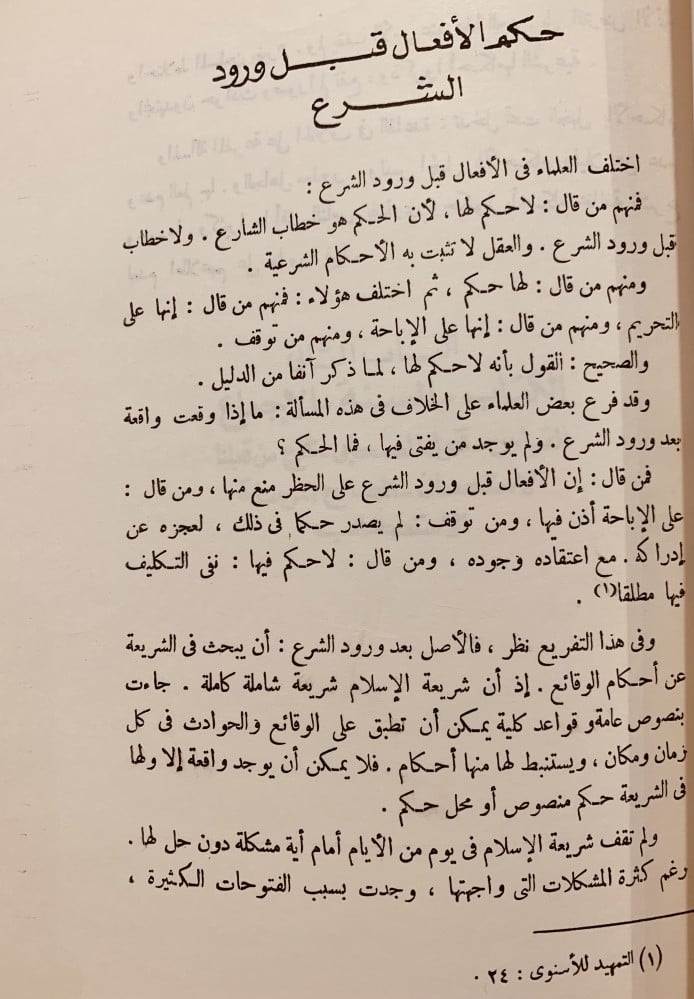 حكم الأفعال قبل ورود
الشرع
اختلف العلماء فى الأفعال قبل ورود الشرع :
فمنهم من قال : لاحكم لها ، لأن الحكم هو خطاب الشارع . ولاخطاب
قبل ورود الشرع . والعقل لا تثبت به الأحكام الشرعية .
ومنهم من قال : لها حكم ، ثم اختلف هؤلاء : فمنهم من قال : إنها على
التحريم ، ومنهم من قال : إنها على الإباحة ، ومنهم من توقف .
والصحيح : القول بأنه لاحكم لها ، لما ذكر آنفا من الدليل .
وقد فرع بعض العلماء على الخلاف فى هذه المسألة : ما إذا وقعت واقعة
بعد ورود الشرع . ولم يوجد من يفتى فيها ، فما الحكم ؟
فمن قال : إن الأفعال قبل ورود الشرع على الحظر منع منها ، ومن قال :
على الإباحة أذن فيها ، ومن توقف : لم يصدر حكما فى ذلك ، لعجزه عن
إدراكه . مع اعتقاده وجوده ، ومن قال : لاحكم فيها : نفى التكليف
فيها مطلقا(١) .
وفى هذا التفريع نظر ، فالأصل بعد ورود الشرع : أن يبحث فى الشريعة
عن أحكام الوقائع . إذ أن شريعة الإسلام شريعة شاملة كاملة . جاءت
بنصوص عامة و قواعد كلية يمكن أن تطبق على الوقائع والحوادث فى كل
زمان ومكان ، ويستنبط لها منها أحكام . فلا يمكن أن يوجد واقعة إلا ولها
فى الشريعة حكم منصوص أو محل حكم .
ولم تقف شريعة الإسلام فى يوم من الأيام أمام أية مشكلة دون حل لها .
رغم كثرة المشكلات التى واجهتها ، وجدت بسبب الفتوحات الكثيرة ،
(١) التمهيد للأسنوى : ٢٤ .